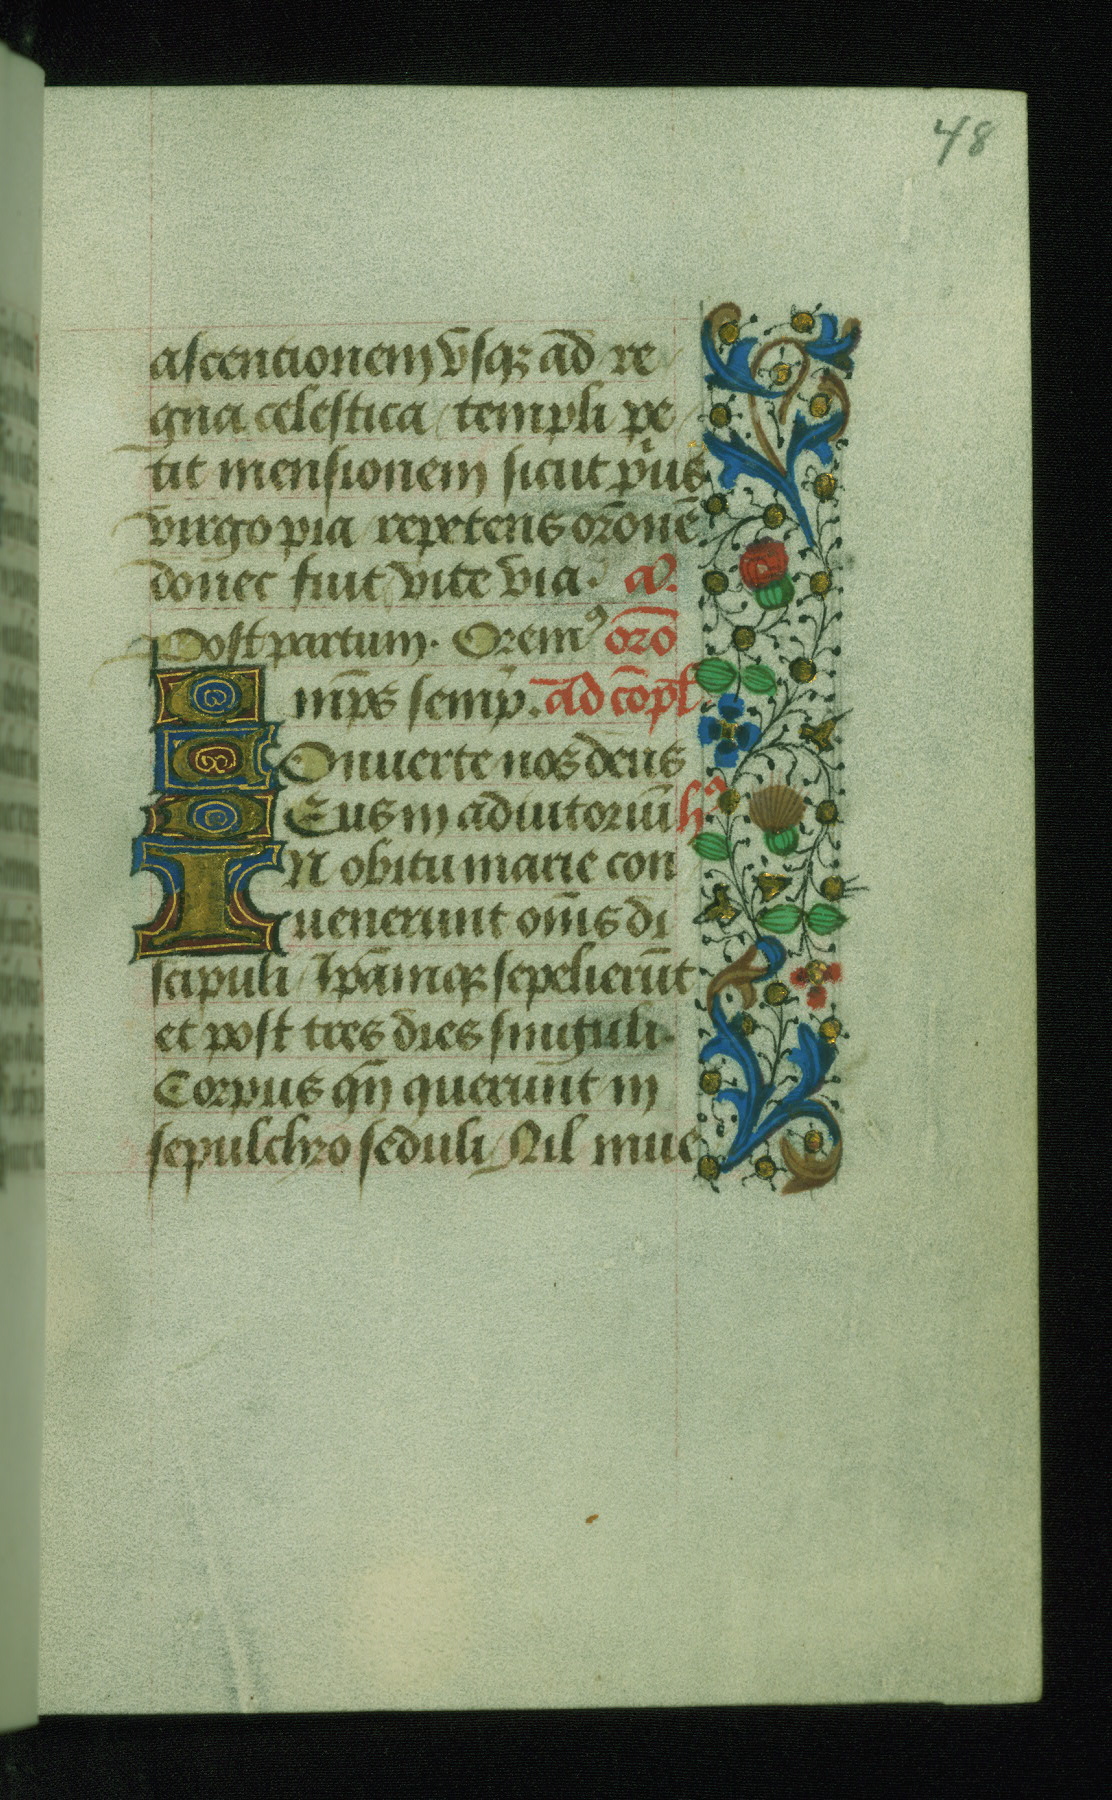 48
ascencionem vsqꝫ ad re
gna celestica / templi pe
tit mensionem sicut pus
virgo pia / repetens oronē
donec fuit vite via. a.
Post partum. Oremꝰ oro
mps semp. ad cōpl
Onuerte nos deus
Eus in adiutoriū hꝰ
IN obitu marie con
uenerunt om̄s di
scipuli / Ipamqꝫ sepelierūt
et post tres dies singuli.
Corpus qn̄ querunt in
sepulchro seduli / Nil inue